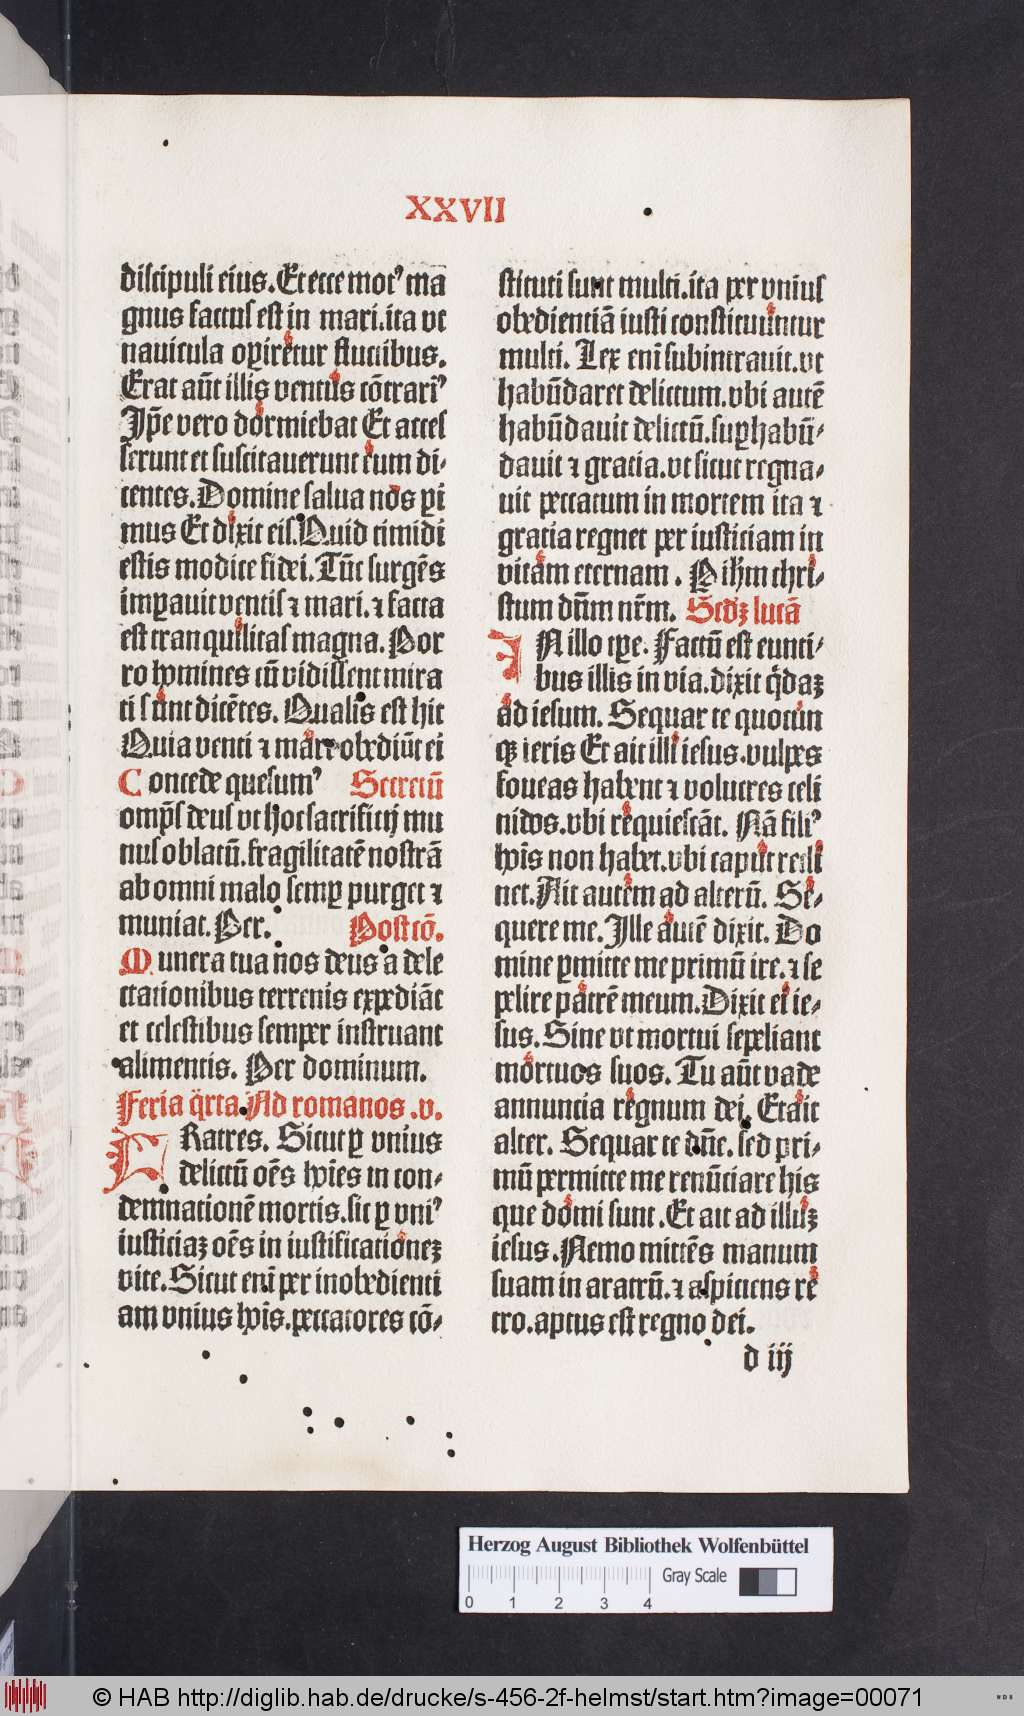 XXVII
discipuli eius. Et ecce motꝰ ma
gnus factus est in mari. ita vt
nauicula oꝑiretur fluctibus.
Erat aūt illis ventus cōtrariꝰ
Ip̄e vero dormiebat Et acces
serunt et suscitauerunt eum di⸗
centes. Domine salua nos ꝑi
mus Et dixit eis. Quid timidi
estis modice fidei. Tūc surgēs
imꝑauit ventis ⁊ mari. ⁊ facta
est tranquilitas magna. Por
ro hoīmines cū vidissent mira
ti sunt dicētes. Qualis est hic
Quia venti ⁊ mare obediūt ei
Concede quesumꝰ Secretū
omp̄s deus vt hoc sacrificij mu
nus oblatū. fragilitatē nostrā
ab omni malo semꝑ purget ⁊
muniat. Per. Postcō.
Munera tua nos deus a dele
ctationibus terrenis expediāt
et celestibus semper instruant
alimentis. Per dominum.
Feria q̈rta Ad romanos .v.
FRatres. Sicut ꝑ vnius
delictū oēs hoīes in con⸗
demnationē mortis. sic ꝑ vniꝰ
iusticiaꝫ oēs in iustificationeꝫ
vite. Sicut enī per inobedienti
am vnius hoīs. peccatores cō⸗
stituti sunt multi. ita per vnius
obedientiā iusti constituuntur
multi. Lex enī subintrauit. vt
habūdaret delictum. vbi autē
habūdauit delictū. suꝑhabū⸗
dauit ⁊ gratia. vt sicut regna⸗
uit peccatum in mortem ita ⁊
gratia regnet per iusticiam in
vitam eternam . P ih̄m chri⸗
stum dn̄m nr̄m. Scd̄ꝫ lucā
IN illo tꝑe. Factū est eunti⸗
bus illis in via. dixit q̈daꝫ
ad iesum. Sequar te quocun
qꝫ ieris Et ait illi iesus. vulpes
foueas habent ⁊ volucres celi
nidos. vbi requiescāt. Nā filiꝰ
hoīs non habet. vbi caput recli
net. Ait autem ad alterū. Se⸗
quere me. Ille autē dixit. Do
mine ꝑmitte me primū ire. ⁊ se
pelire patrē meum. Dixit ei ie⸗
sus. Sine vt mortui sepeliant
mortuos suos. Tu aūt vade
annuncia regnum dei. Et ait
alter. Sequar te dn̄e. sed pri⸗
mū permitte me renūciare his
que domi sunt. Et ait ad illuꝫ
iesus. Nemo mittēs manum
suam in aratrū. ⁊ aspiciens re
tro. aptus est regno dei.
d iij
Herzog August Bibliothek Wolfenbüttel
Gray Scale
0 1 2 3 4
© HAB http://diglib.hab.de/drucke/s-456-2f-helmst/start.htm?image=00071